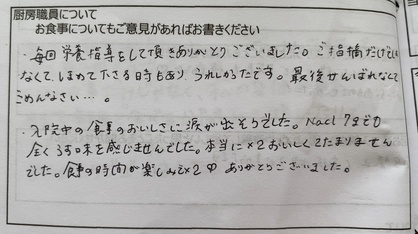 厨房職員について
お食事についてもご意見があればお書きください
・毎回栄養指導をして頂きありがとうございました。ご指摘だけでは
なくて、しまめて下さる時もあり、うれしかったです。最後せんばれなくて
ごめんなさい…。
・入院中の食事のおいしさに涙が出そうでした。Nacl 7gでも
全くうす味を感じませんでした。本当に×2おいしくてたまりません
でした。食事の時間が楽しみで×2 ありがとうございました。